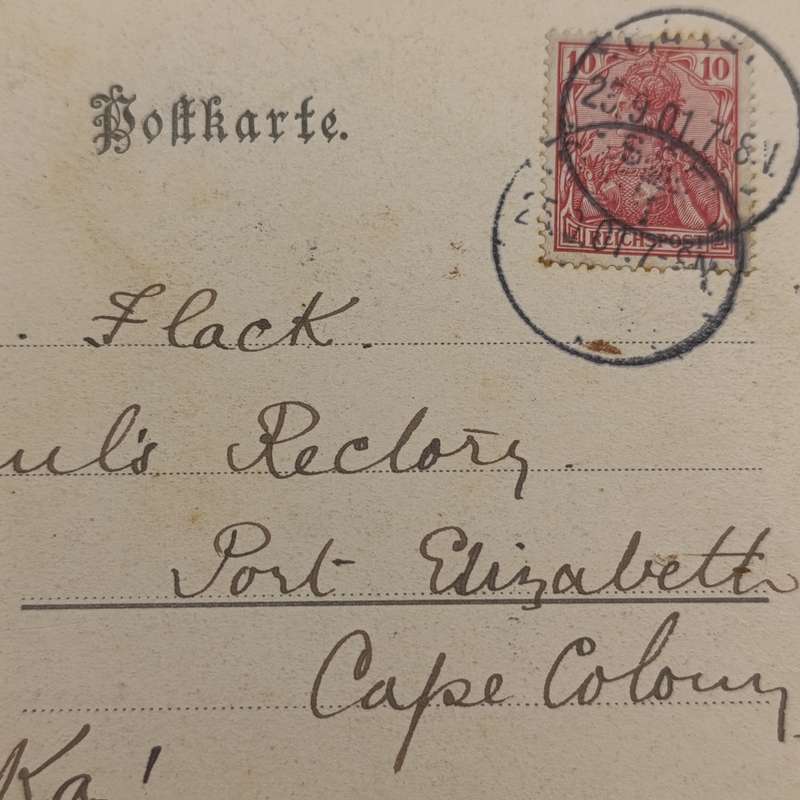 Postkarte.
10 10
25.9.01.7-8.V
REICHSPOST
01.7-8V
. Flack.
ul's Rectory.
Port Elizabeth
Cape Colony
Ka!